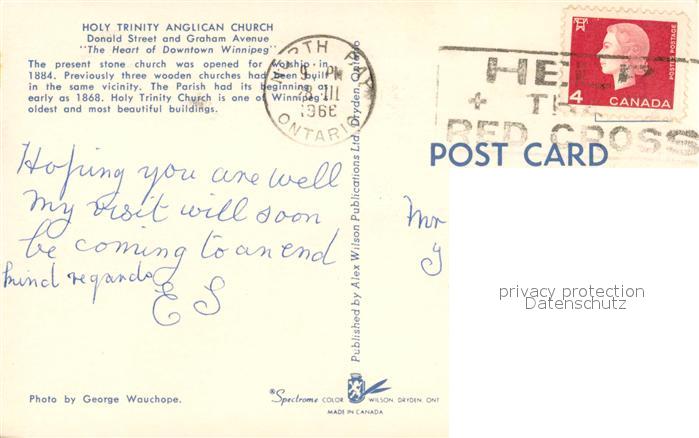 HOLY TRINITY ANGLICAN CHURCH
Donald Street and Graham Avenue
"The Heart of Downtown Winnipeg"
The present stone church was opened for worship in
1884. Previously three wooden churches had been built
in the same vicinity. The Parish had its beginning as
early as 1868. Holy Trinity Church is one of Winnipeg's
oldest and most beautiful buildings.
NORTH BAY
9 PM
8 III
1966
ONTARIO
HELP
+ THE
RED CROSS
POSTES POSTAGE
4 CANADA
POST CARD
Hoping you are well
My visit will soon
be coming to an end
kind regards
E S
Mr
Published by Alex Wilson Publications Ltd., Dryden, Ontario
privacy protection
Datenschutz
Photo by George Wauchope.
®Spectrome COLOR WILSON, DRYDEN, ONT
MADE IN CANADA